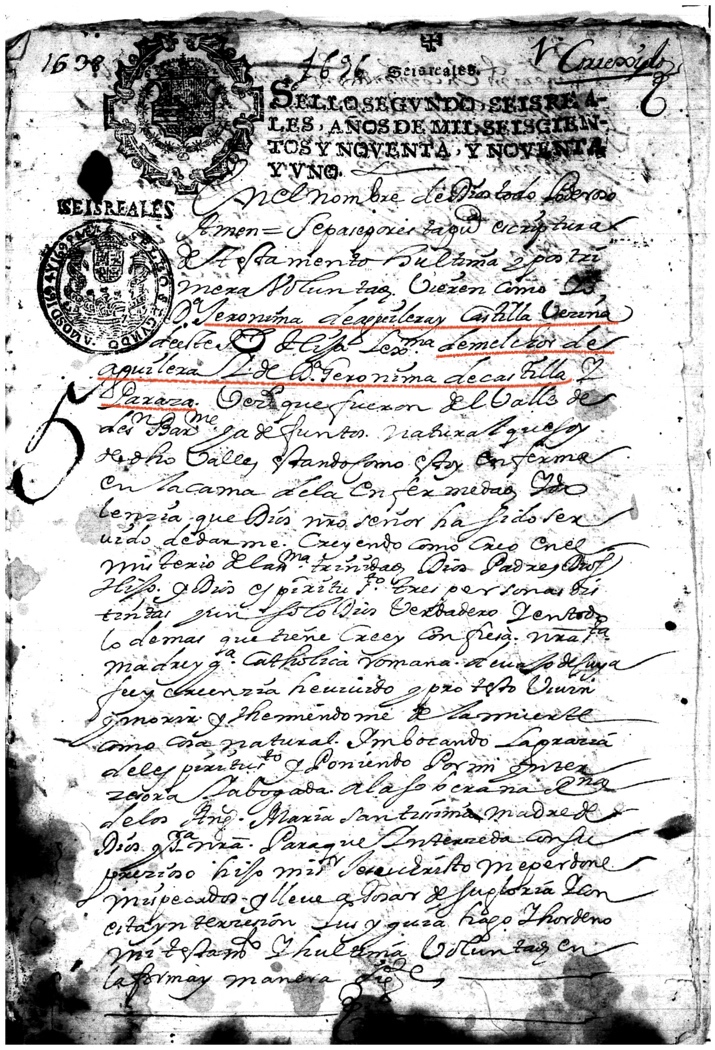 1638
1696
Seis reales.
SELLO SEGVNDO, SEIS REA-
LES, AÑOS DE MIL SEISCIEN-
TOS Y NOVENTA, Y NOVENTA
Y VNO.
SEISREALES
SELLO SEGUNDO
En el nombre de Dios todo Poderoso
Amen = Sepase por esta pu.ca escriptura
de testamento hultima y postri
mera Voluntad Vieren como Yo
D.a Jeronima de aguilera y Castilla Vezina
de este Hija lex.ma de melchor de
aguilera y de D.a Geronima de castilla y
Paraza. que fueron del Valle de
S.n Bar.me ya defuntos. natural que soy
de dho Valle, estando como estoy enferma
en la cama de la enfermedad
lenzia que Dios nro señor ha sido ser
uido de darme. Creyendo como creo en el
misterio de la san.ma trinidad Dios Padre Dios
Hijo, y Dios espiritu s.to tres personas dis
tintas y un solo Dios Verdadero Y en todo
lo demas que tiene Cree y Confiesa. nra s.ta
madre yg.a Catholica romana. de cuya
fee y creenzia he viuido y protesto Viuir
y morir. y themiendome de la muerte
como cosa natural. Imbocando La grazia
del espiritu s.to y Poniendo Por mi Inter
zesora y abogada. a la soberana Reyna
de los Ang. Maria santisima madre de
Dios y s.ra nra. Para que Interzeda con su
prezioso hijo mi s.r Jesuchristo me perdone
mis pecados. y lleve a gozar de su gloria Y con
esta yntersesion lus y guia hago Y hordeno
mi testam.to Y hultima Voluntad en
la forma y manera sig.te
5